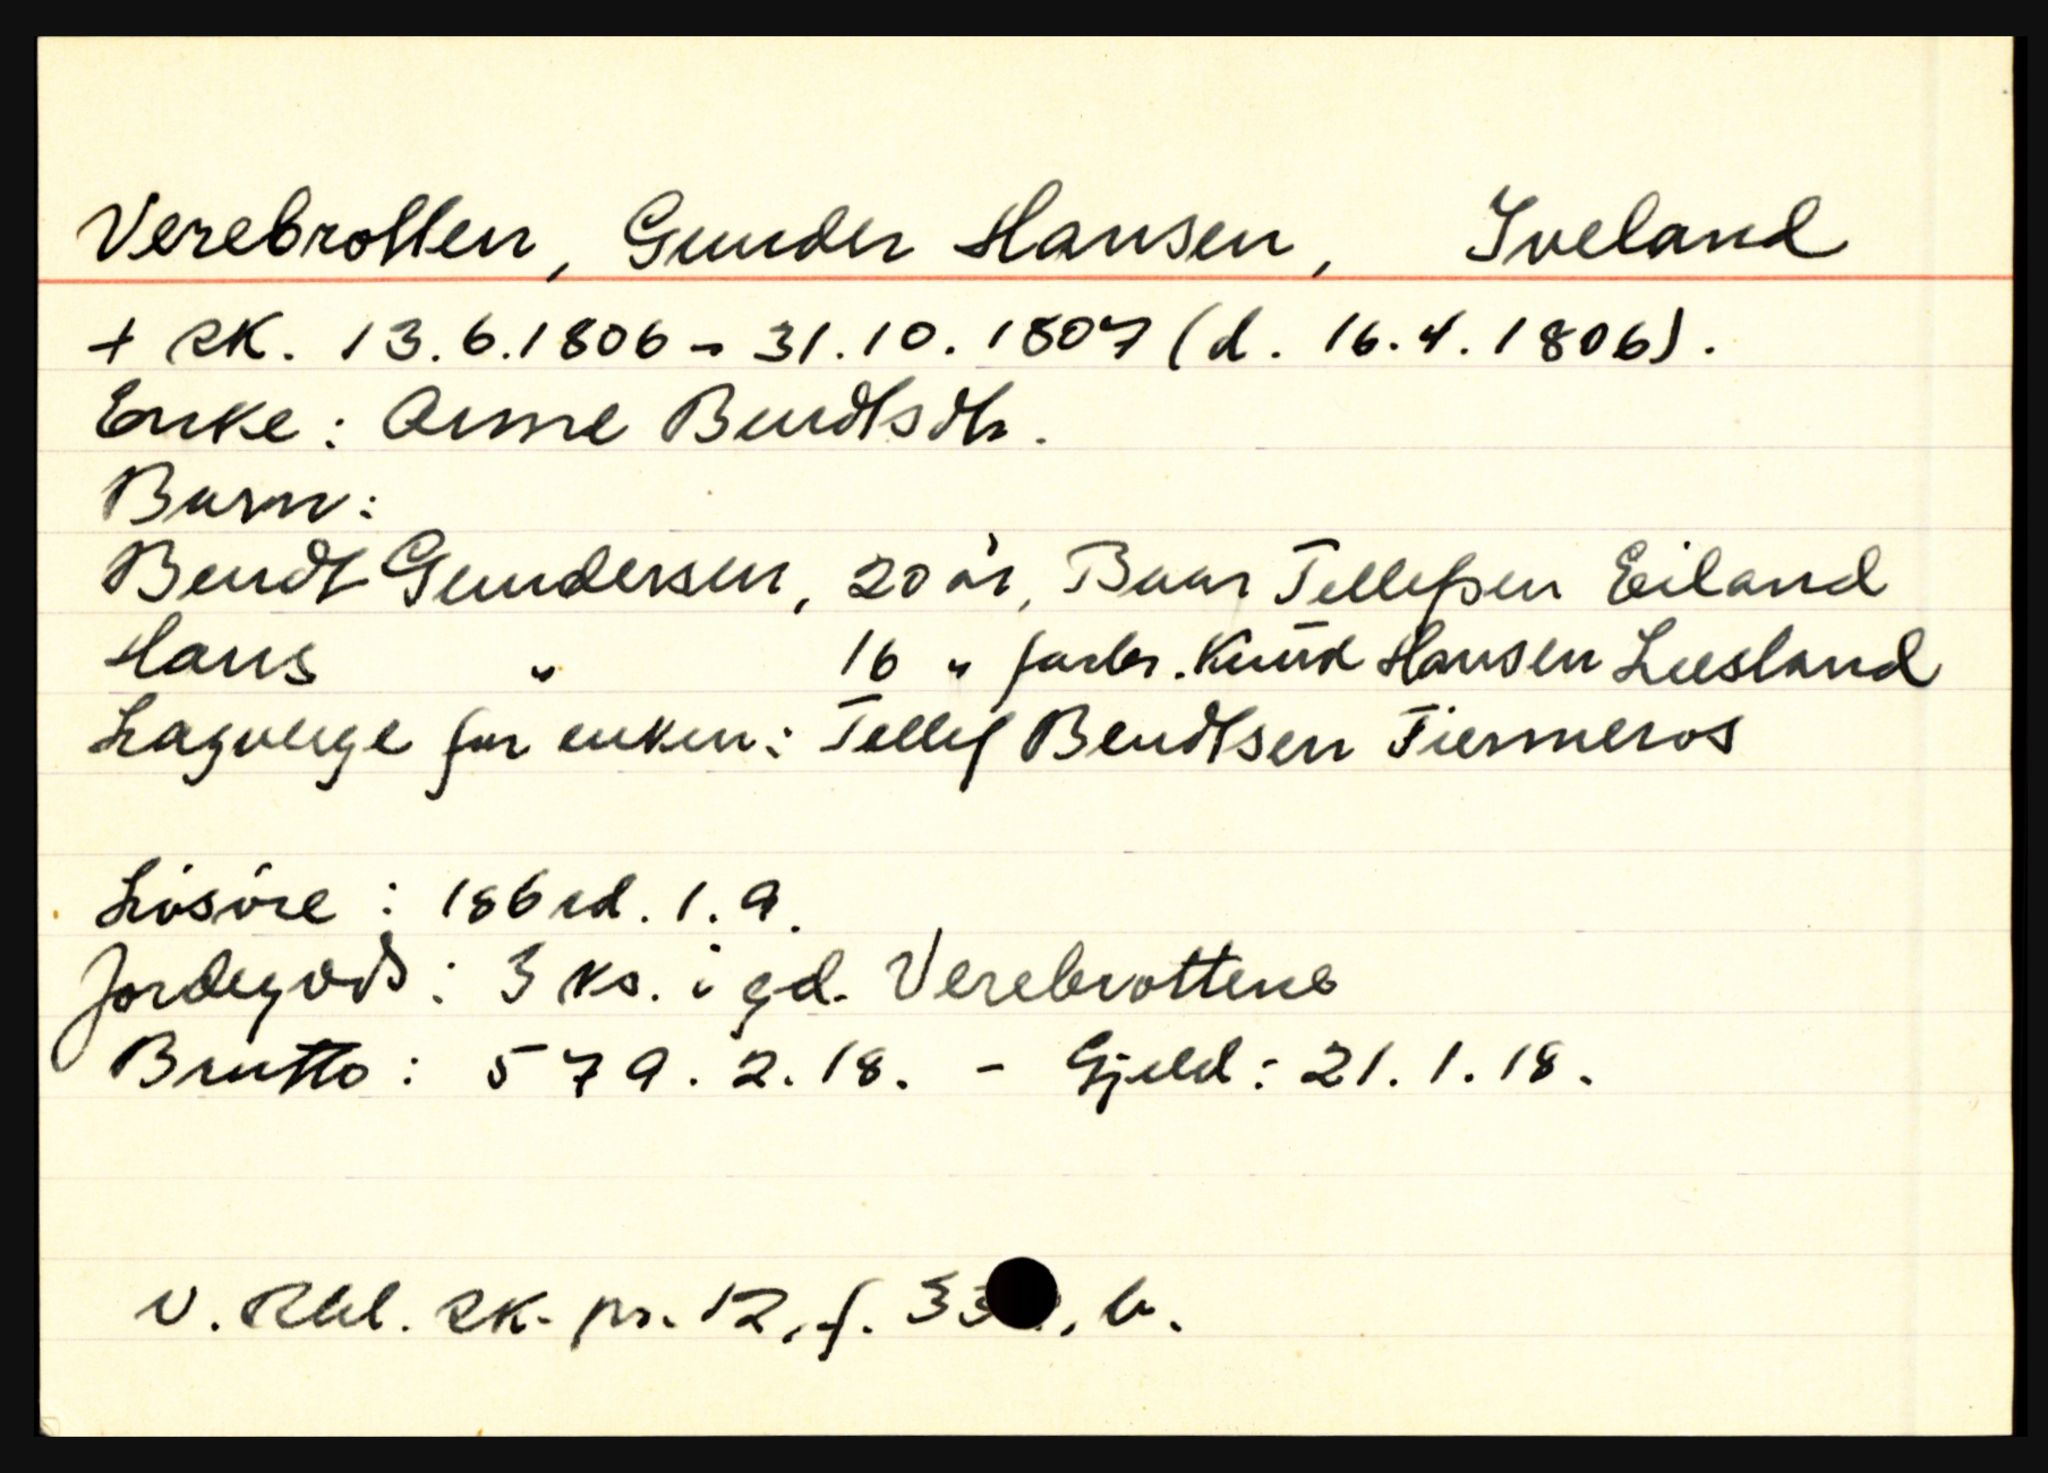 Verebrotten, Gunder Hansen, Iveland
+ sk. 13.6.1806 - 31.10.1807 (d. 16.4.1806).
Enke: Anne Bendtsdtr.
Barn:
Bendt Gundersen, 20 år, Baar Tellefsen Eiland
Hans " 16 " farbr. Knud Hansen Lusland
Lagverge for enken: Tellef Bendtsen Tiernneros
Lösöre: 186 rd. 1. 9.
Jordegods: 3 ks. i gd. Verebrottene
Brutto: 579. 2. 18. - Gjeld: 21. 1. 18.
V. Rbl. sk. pr. 12, f. 33 , b.